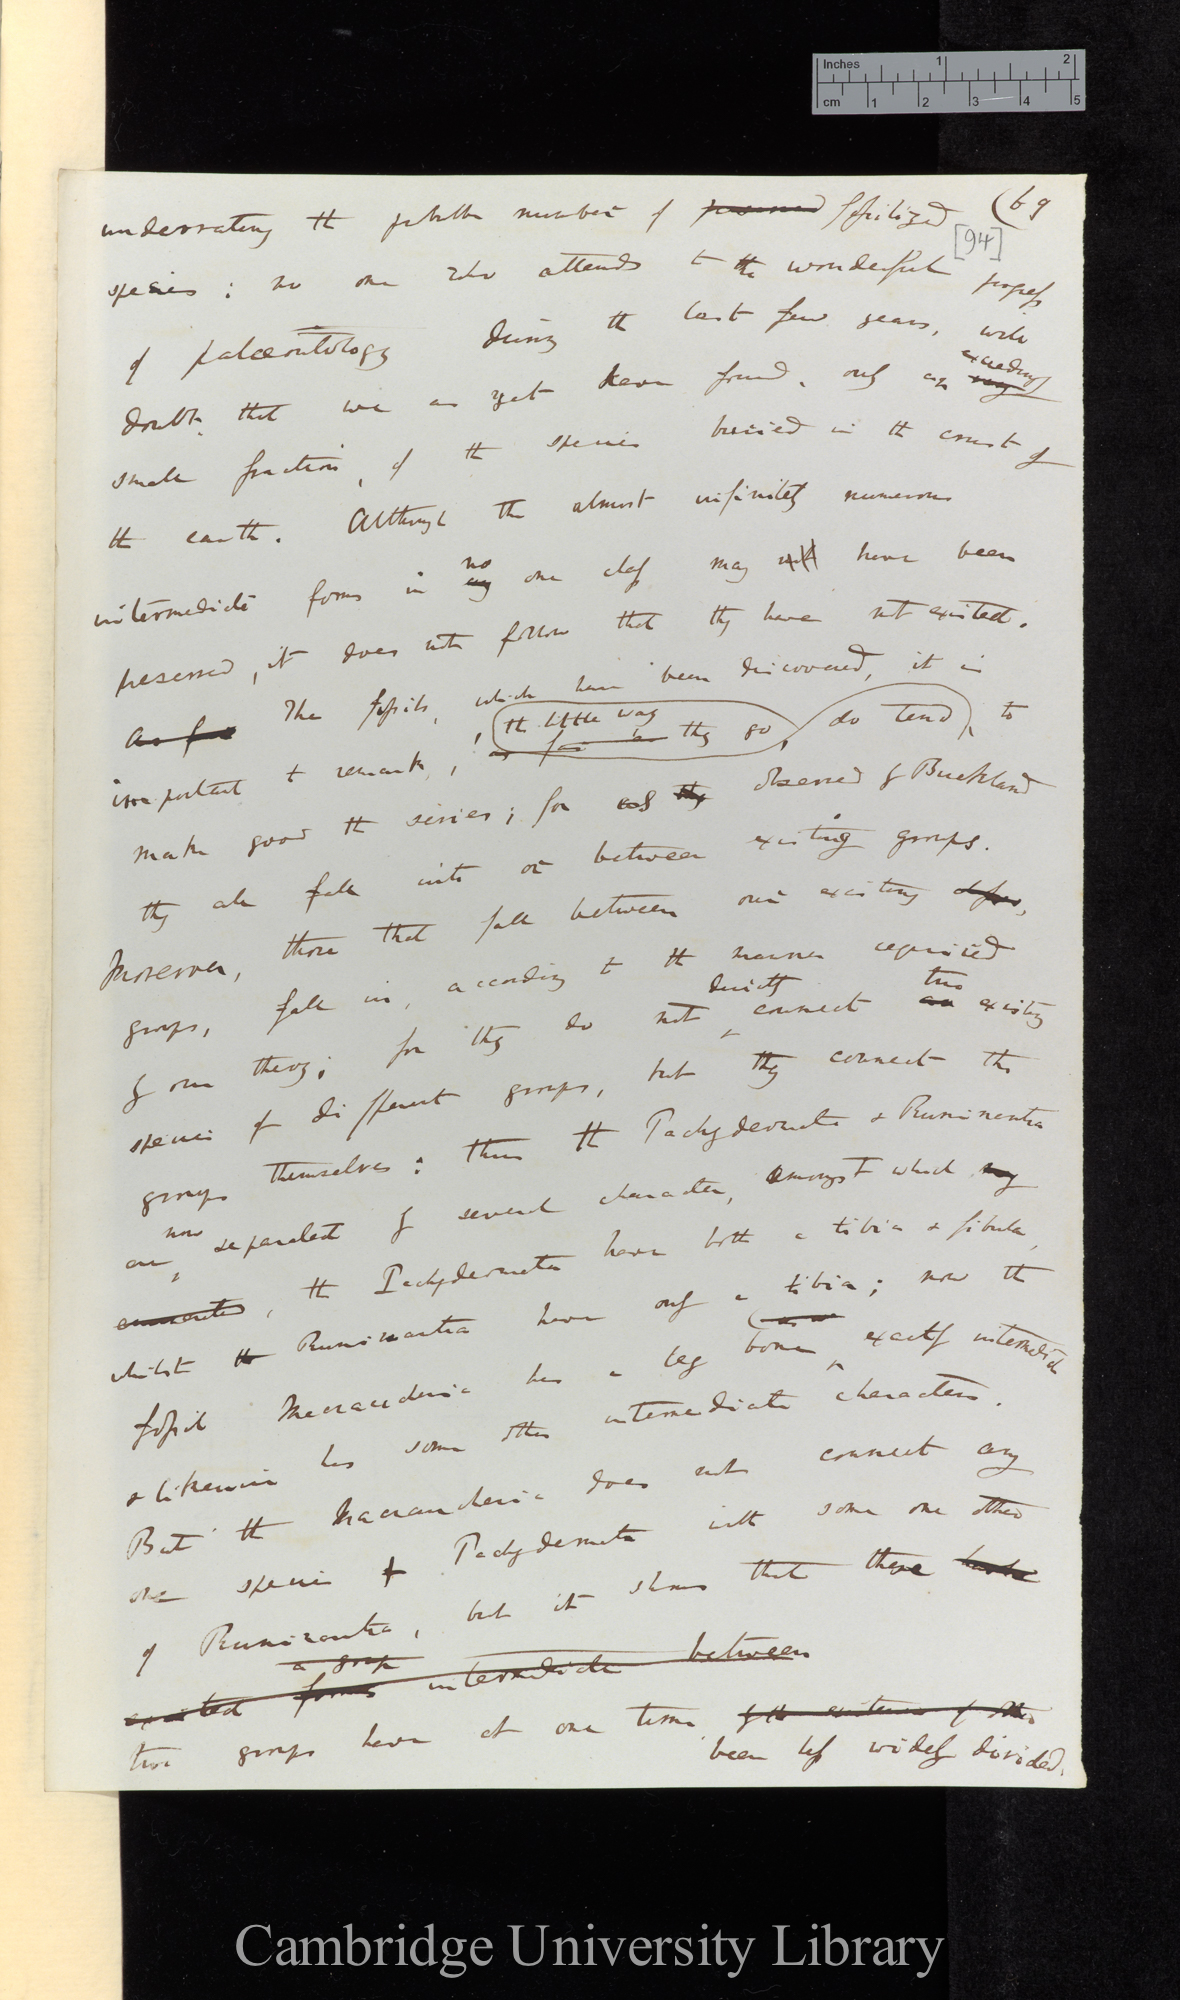 Inches 1 2
cm 1 2 3 4 5
(69
[94]
underrating the probable number of preserved fossilized
species: no one who attends to the wonderful progress
of palæontology during the last few years, will
doubt that we as yet have found, only an very exceedingly
small fraction, of the species buried in the crust of
the earth. Although the almost infinitely numerous
intermediate forms in any no one class may not have been
preserved, it does not follow that they have not existed.
As far The fossils, which have been discovered, it is
important to remark, as far as the little way they go, do tend, to
make good the series; for as they observed by Buckland
they all fall into or between existing groups.
Moreover, those that fall between our existing classes,
groups, fall in, according to the manner required
by our theory; for they do not directly connect an two existing
species of different groups, but they connect the
groups themselves: thus the Pachydermata & Ruminantia
are now separated by several characters, amongst which may
enumerated, the Pachydermata have both a tibia & fibula,
whilst the Ruminantia have only a tibia; now the
fossil Macrauchenia has a leg bone exactly intermediate
& likewise has some other intermediate characters.
But the Macrauchenia does not connect any
one species of Pachydermata with some one other
of Ruminantia, but it shows that these have
existed forms a group intermediate between
two groups have at one time by the existence of other
been less widely divided.
Cambridge University Library